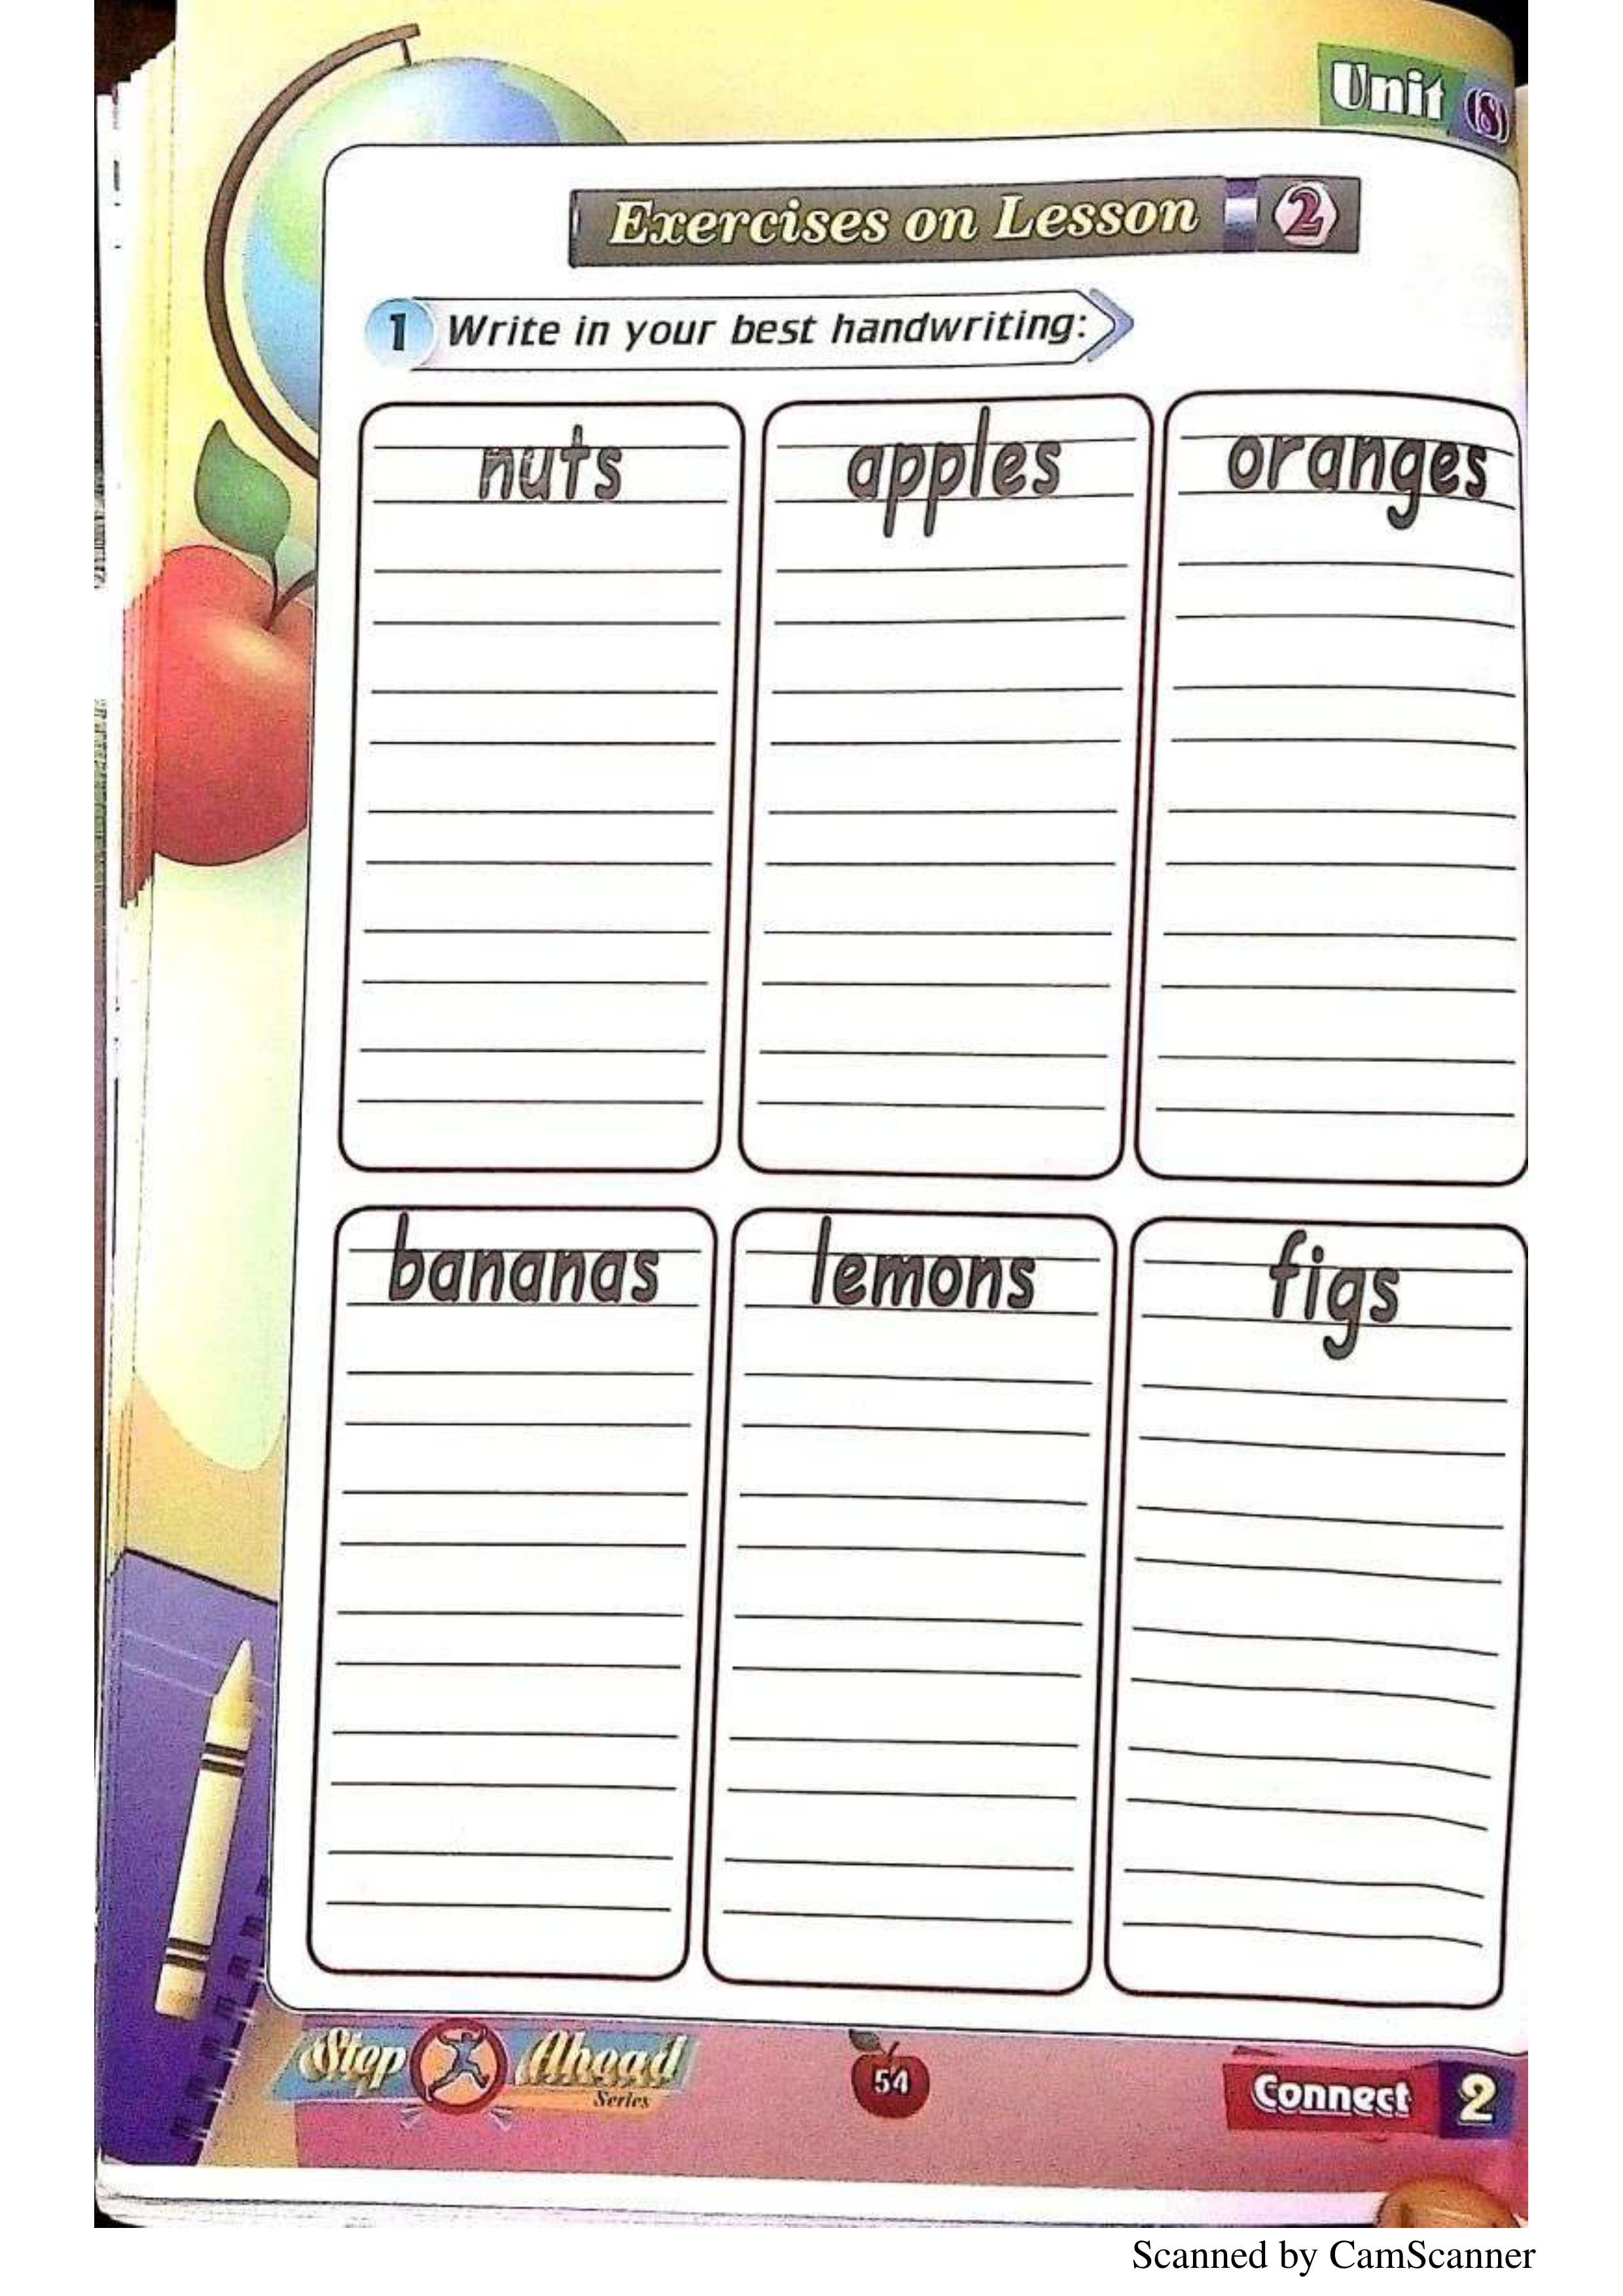 Unit (8)
Exercises on Lesson 2
1 Write in your best handwriting:
nuts apples oranges
bananas lemons figs
Step Ahead
Series
54
Connect 2
Scanned by CamScanner